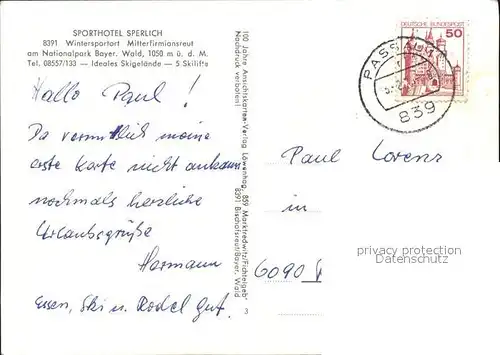 SPORTHOTEL SPERLICH
8391 Wintersportort Mitterfirmiansreut
am Nationalpark Bayer. Wald, 1050 m ü. d. M.
Tel. 08557/133 — Ideales Skigelände — 5 Skilifts
Hallo Paul!
Da vermutlich meine
erste Karte nicht ankam
nochmals herzliche
Urlaubsgrüße
Hermann
Essen, Ski u. Rodel gut.
100 Jahre Ansichtskarten-Verlag Löwenhag, 859 Marktredwitz/Fichtelgeb.
Nachdruck verboten! 8391 Bischofsreut/Bayer. Wald 3
DEUTSCHE BUNDESPOST
50
PASSAU
839
Paul Lorenz
in
6090
privacy protection
Datenschutz